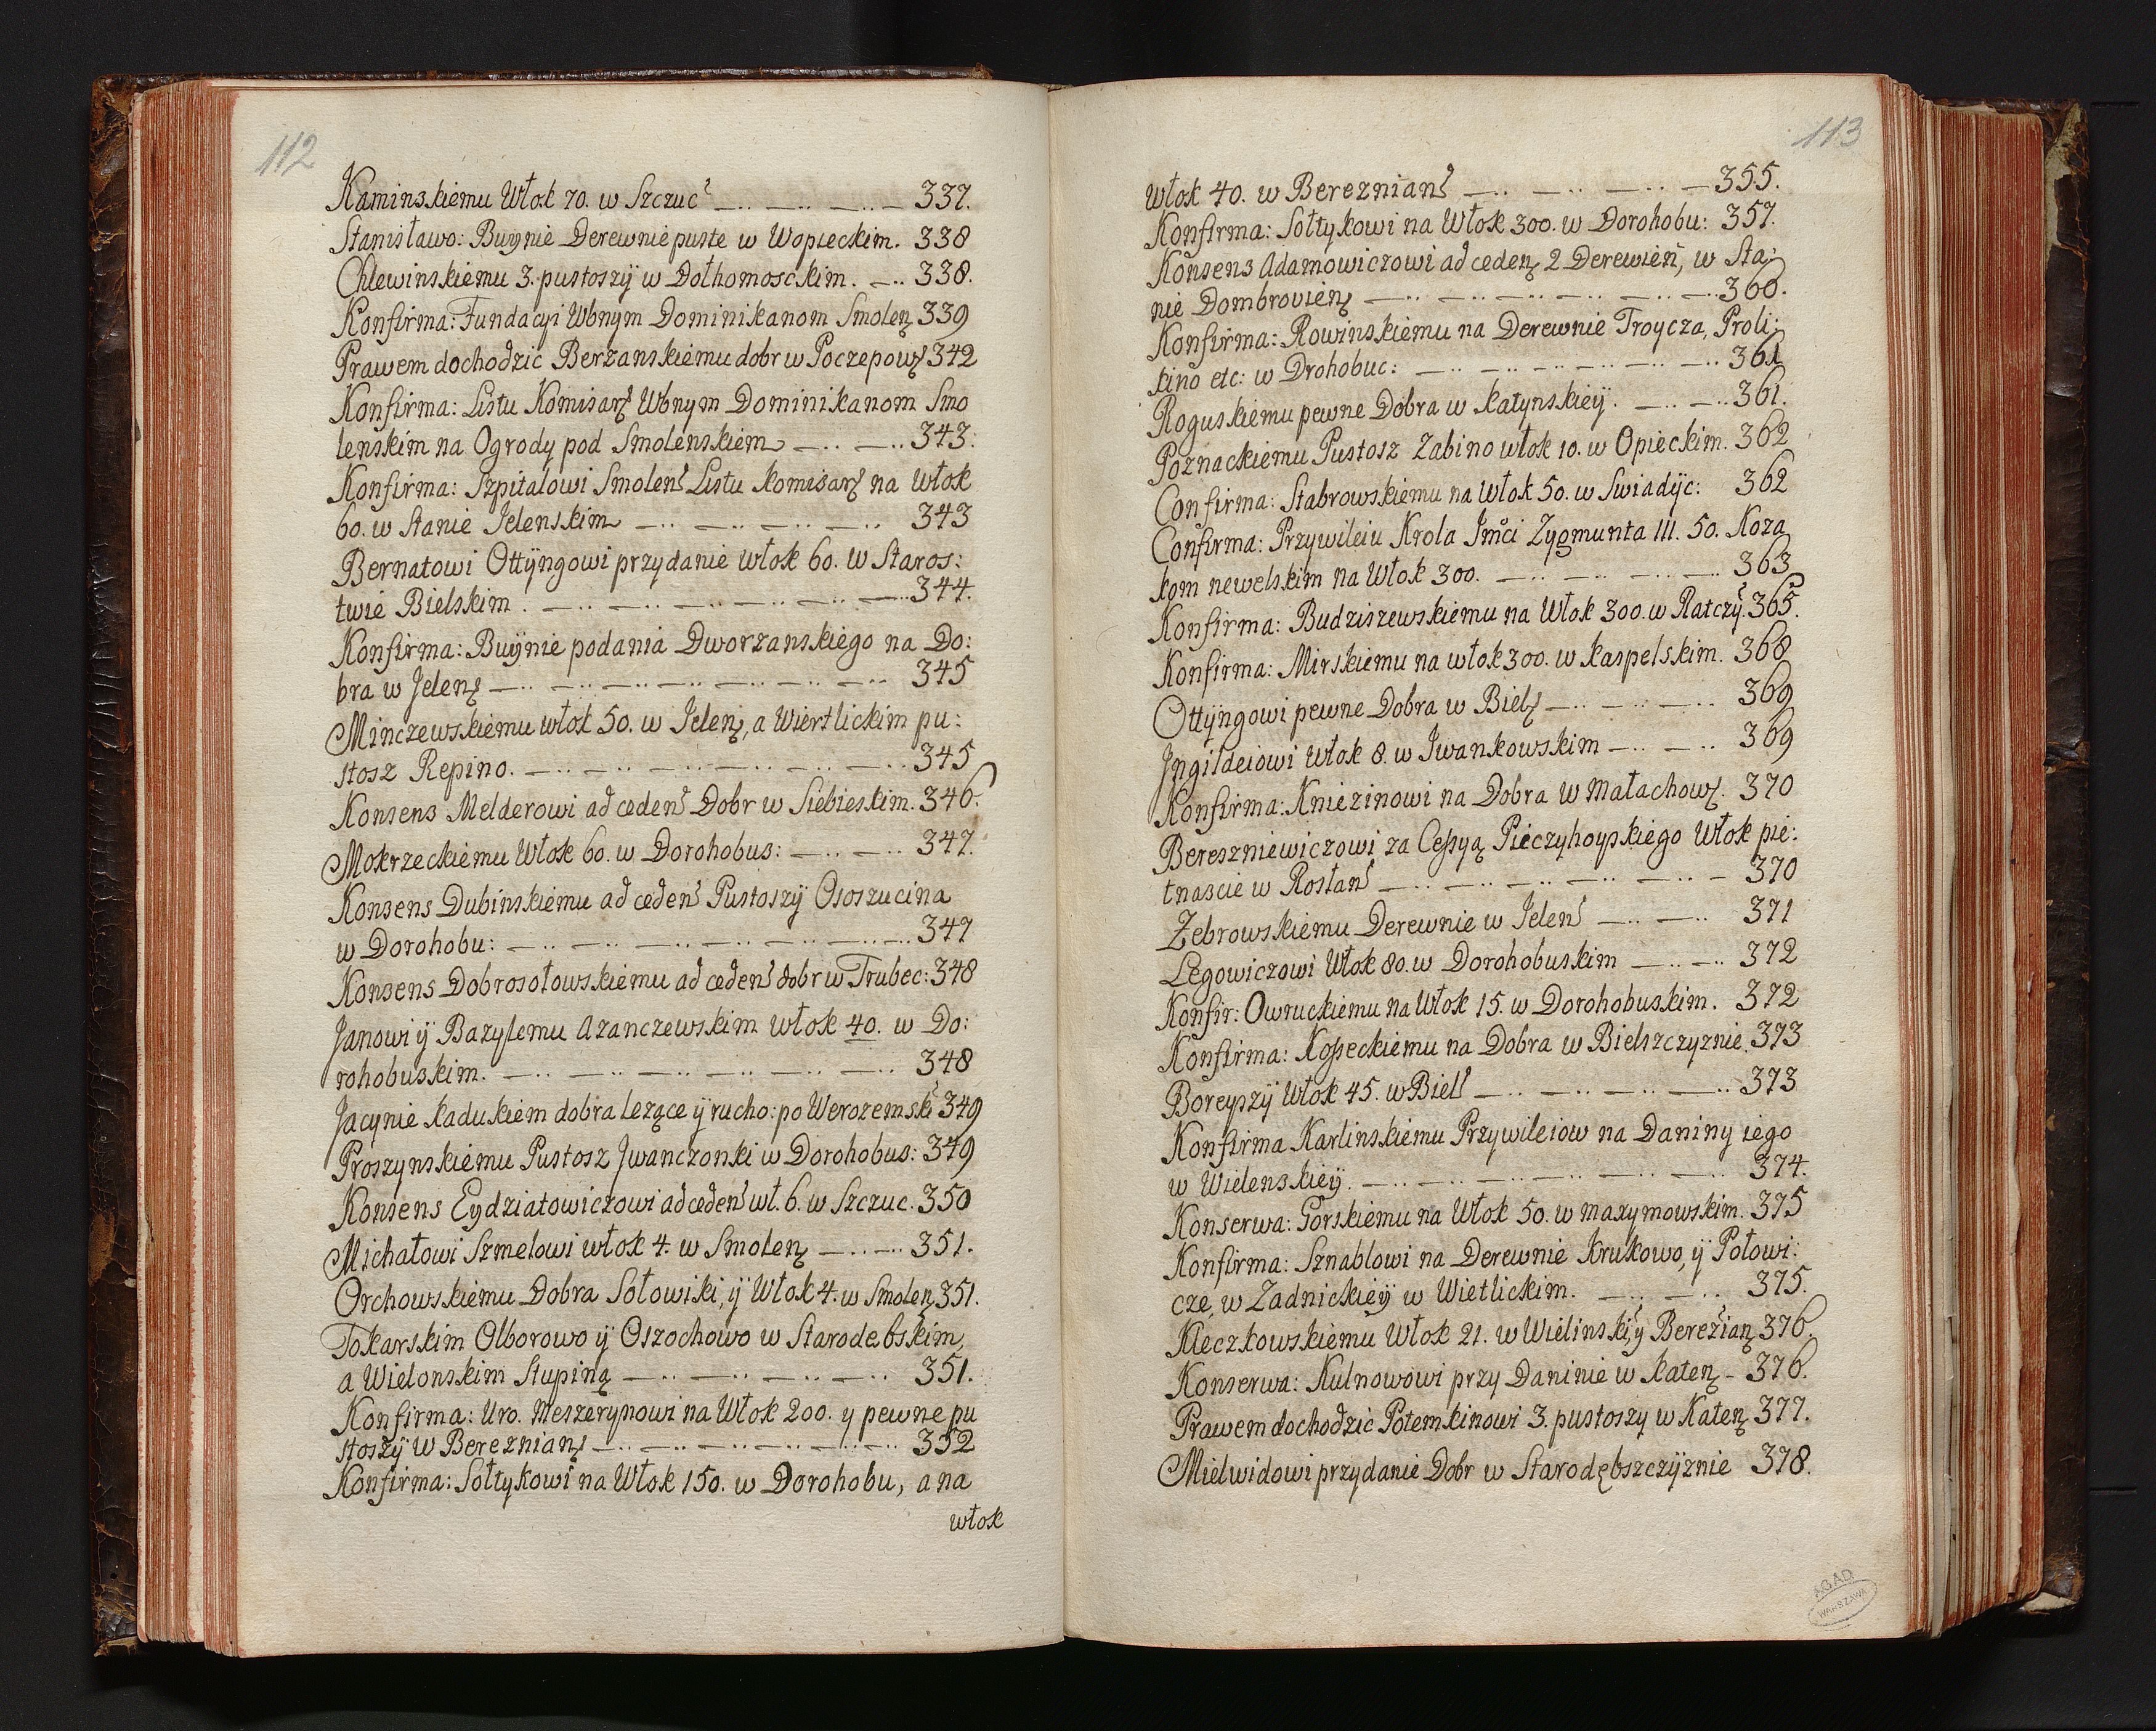 112
Kaminskiemu Włok 70. w Szczuc 337.
Stanisławo: Buynie Derewnie puste w Wopieckim. 338
Chlewinskiemu 3. pustoszÿ w Dołhomosckim. 338.
Konfirma: Fundacyi Wbnym Dominikanom Smolen 339
Prawem dochodzic Berzanskiemu dobr w Poczepow 342
Konfirma: Listu Komisar Wbnym Dominikanom Smo
lenskim na Ogrody pod Smolenskiem 343.
Konfirma: Szpitalowi Smolen Listu Komisar na Włok
60. w Stanie Jelenskim 343
Bernatowi Ottÿngowi przydanie włok 60. w Staros:
twie Bielskim. 344.
Konfirma: Buÿnie podania Dworzanskiego na Do:
bra w Jelen 345
Minczewskiemu włok 50. w Jelen, a Wiertlickim pu:
stosz Repino. 345
Konsens Melderowi ad ceden Dobr w Siebieskim. 346.
Mokrzeckiemu Włok 60. w Dorohobus: 347.
Konsens Dubinskiemu ad ceden Pustoszÿ Ososzucina
w Dorohobu: 347
Konsens Dobrosołowskiemu ad ceden dobr w Trubec: 348
Janowi ÿ Bazylemu Azanczewskim włok 40. w Do:
rohobuskim. 348
Jacynie kadukiem dobra lezące ÿ rucho: po Werozemski 349
Proszynskiemu Pustosz Jwanczonki w Dorohobus: 349
Konsens Eydziatowiczowi ad ceden wł. 6. w Szczuc. 350
Michałowi Szmelowi włok 4. w Smolen 351.
Orchowskiemu Dobra Sołowiki, ÿ Włok 4. w Smolen 351.
Tokarskim Olborowo ÿ Oszochowo w Starodebskim,
a Wielonskim Stupiną 351.
Konfirma: Uro. Meszerynowi na Włok 200. y pewne pu
stoszÿ w Bereznian 352
Konfirma: Sołtykowi na Włok 150. w Dorohobu, a na
włok
113
Włok 40. w Bereznian 355.
Konfirma: Sołtykowi na Włok 300. w Dorohobu: 357.
Konsens Adamowiczowi ad ceden 2 Derewien, w Sta:
nie Dombrovien 360.
Konfirma: Rowinskiemu na Derewnie Troycza, Proli:
kino etc: w Drohobuc: 361
Roguskiemu pewne Dobra w Katynskieÿ. 361.
Poznackiemu Pustosz Zabino włok 10. w Opieckim. 362
Confirma: Stabrowskiemu na Włok 50. w Swiadÿc: 362
Confirma: Przywileiu Krola Jmci Zygmunta III. 50. Koza
kom newelskim na Włok 300. 363
Konfirma: Budziszewskiemu na Włok 300. w Ratczy. 365.
Konfirma: Mirskiemu na włok 300. w Kaspelskim. 368
Ottÿngowi pewne Dobra w Biel 369
Jngildeiowi Włok 8. w Jwankowskim 369
Konfirma: Kniezinowi na Dobra w Małachow. 370
Bereszniewiczowi za Cessyą Pieczyhoyskiego Włok pie:
tnascie w Rosłan 370
Żebrowskiemu Derewnie w Jelen 371
Legowiczowi Włok 80. w Dorohobuskim 372
Konfir: Owruckiemu na Włok 15. w Dorohobuskim. 372
Konfirma: Kosseckiemu na Dobra w Bielszczyznie. 373
Boreyszÿ Włok 45. w Biel 373
Konfirma Karlinskiemu Przywileiow na Daniny iego
w Wielenskieÿ. 374.
Konserwa: Gorskiemu na Włok 50. w maxymowskim. 375
Konfirma: Sznablowi na Derewnie Krukowo, ÿ Połowi:
cze, w Zadnickieÿ w Wietlickim. 375.
Kleczkowskiemu Włok 21. w Wielinski, y Berezian 376.
Konserwa: Kulnowowi przy Daninie w Katen 376.
Prawem dochodzic Potemkinowi 3. pustoszy w Katen 377.
Mielwidowi przydanie Dobr w Starodębszczÿznie 378.
A.G.A.D.
WARSZAWA